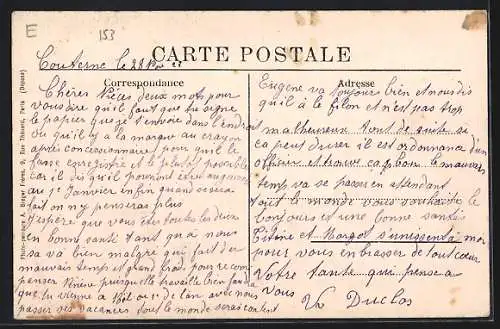 E
153
Couterne le 28
CARTE POSTALE
Correspondance
Adresse
Chères Nièces deux mots pour
vous dire qu'il faut que tu signe
le papier que je t'envoie dans l'endroit
ou qu'il y a la marque au crayon
après concessionnaire pour qu'il le
fasse enregistré et le plutot possible
car il dis qu'il pourraient être augmenté
au 1er Janvier enfin quand se sera
fait on n'y penseras plus
J'espère que vous êtes toutes les deux
en bonne santé tant qu'a nous
sa va bien malgré qu'il fait du
mauvais temps et grand froid pour recom
penser que se travaille bien faudra
que tu vienne a de l'an avec nous
passer tes vacances tous le monde serais content
Eugène va toujour bien et nous dis
qu'il à le filon et n'est pas trop
malheureux tout de suite si
ca peut durer il est ordonnance d'un
officier et trouve ca bon le mauvais
temp va se passer en attendant
tout le monde vous souhaite le
bonjours et une bonne santés
Titine et Margot s'unissent à moi
pour vous embrasser de tout cœur
Votre tante qui pense a
Vous Vve Duclos
Photo-typie A. Breger Frères, 9, Rue Thénard, Paris (Déposé)